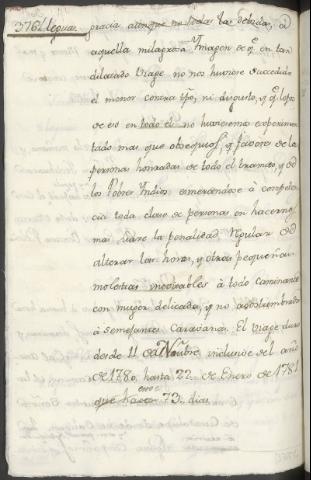 376½ leguas gracia aunque no toda la debida, á
aquella milagrosa Ymagen de q.e en tan
dilatado Viage no nos huviese succedido
el menor contra tpo, ni disgusto, y q.e lejos
de eso en todo él no haviamos experimen
tado mas que obsequios, y favores de las
personas honradas de todo el transito, y de
los Pobres Indios esmerandose á competen
cia toda clase de personas en hacernos
mas llebe la penalidad regular de
alterar las horas, y otras pequeñas
molestias inevitables á todo caminante
con mayor delicadez, y no acostumbrado
á semejantes Caravanas. El viage duró
desde 11 de Nov.bre inclusive del año
de 1780, hasta 22 de Enero de 1781
que hacen 73 dias